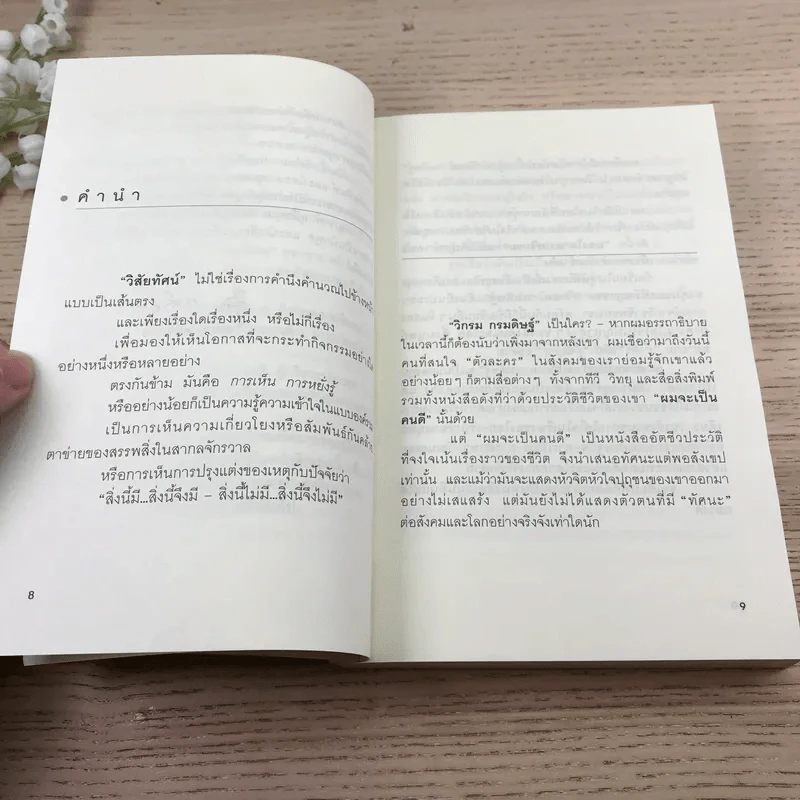 คำนำ
“วิสัยทัศน์” ไม่ใช่เรื่องการคำนึงคำนวณไปข้างหน้า
แบบเป็นเส้นตรง
และเพียงเรื่องใดเรื่องหนึ่ง หรือไม่กี่เรื่อง
เพื่อมองให้เห็นโอกาสที่จะกระทำกิจกรรมอย่างใด
อย่างหนึ่งหรือหลายอย่าง
ตรงกันข้าม มันคือ การเห็น การหยั่งรู้
หรืออย่างน้อยก็เป็นความรู้ความเข้าใจในแบบองค์รวม
เป็นการเห็นความเกี่ยวโยงหรือสัมพันธ์กันคล้าย
ตาข่ายของสรรพสิ่งในสากลจักรวาล
หรือการเห็นการปรุงแต่งของเหตุกับปัจจัยว่า
“สิ่งนี้มี...สิ่งนี้จึงมี – สิ่งนี้ไม่มี...สิ่งนี้จึงไม่มี”
8
“วิกรม กรมดิษฐ์” เป็นใคร? – หากผมอรรถาธิบาย
ในเวลานี้ก็ต้องนับว่าเพิ่งมาจากหลังเขา ผมเชื่อว่ามาถึงวันนี้
คนที่สนใจ “ตัวละคร” ในสังคมของเราย่อมรู้จักเขาแล้ว
อย่างน้อยๆ ก็ตามสื่อต่างๆ ทั้งจากทีวี วิทยุ และสื่อสิ่งพิมพ์
รวมทั้งหนังสือดังที่ว่าด้วยประวัติชีวิตของเขา “ผมจะเป็น
คนดี” นั้นด้วย
แต่ “ผมจะเป็นคนดี” เป็นหนังสืออัตชีวประวัติ
ที่จงใจเน้นเรื่องราวของชีวิต จึงนำเสนอทัศนะแต่พอสังเขป
เท่านั้น และแม้ว่ามันจะแสดงหัวจิตหัวใจปุถุชนของเขาออกมา
อย่างไม่เสแสร้ง แต่มันยังไม่ได้แสดงตัวตนที่มี “ทัศนะ”
ต่อสังคมและโลกอย่างจริงจังเท่าใดนัก
9